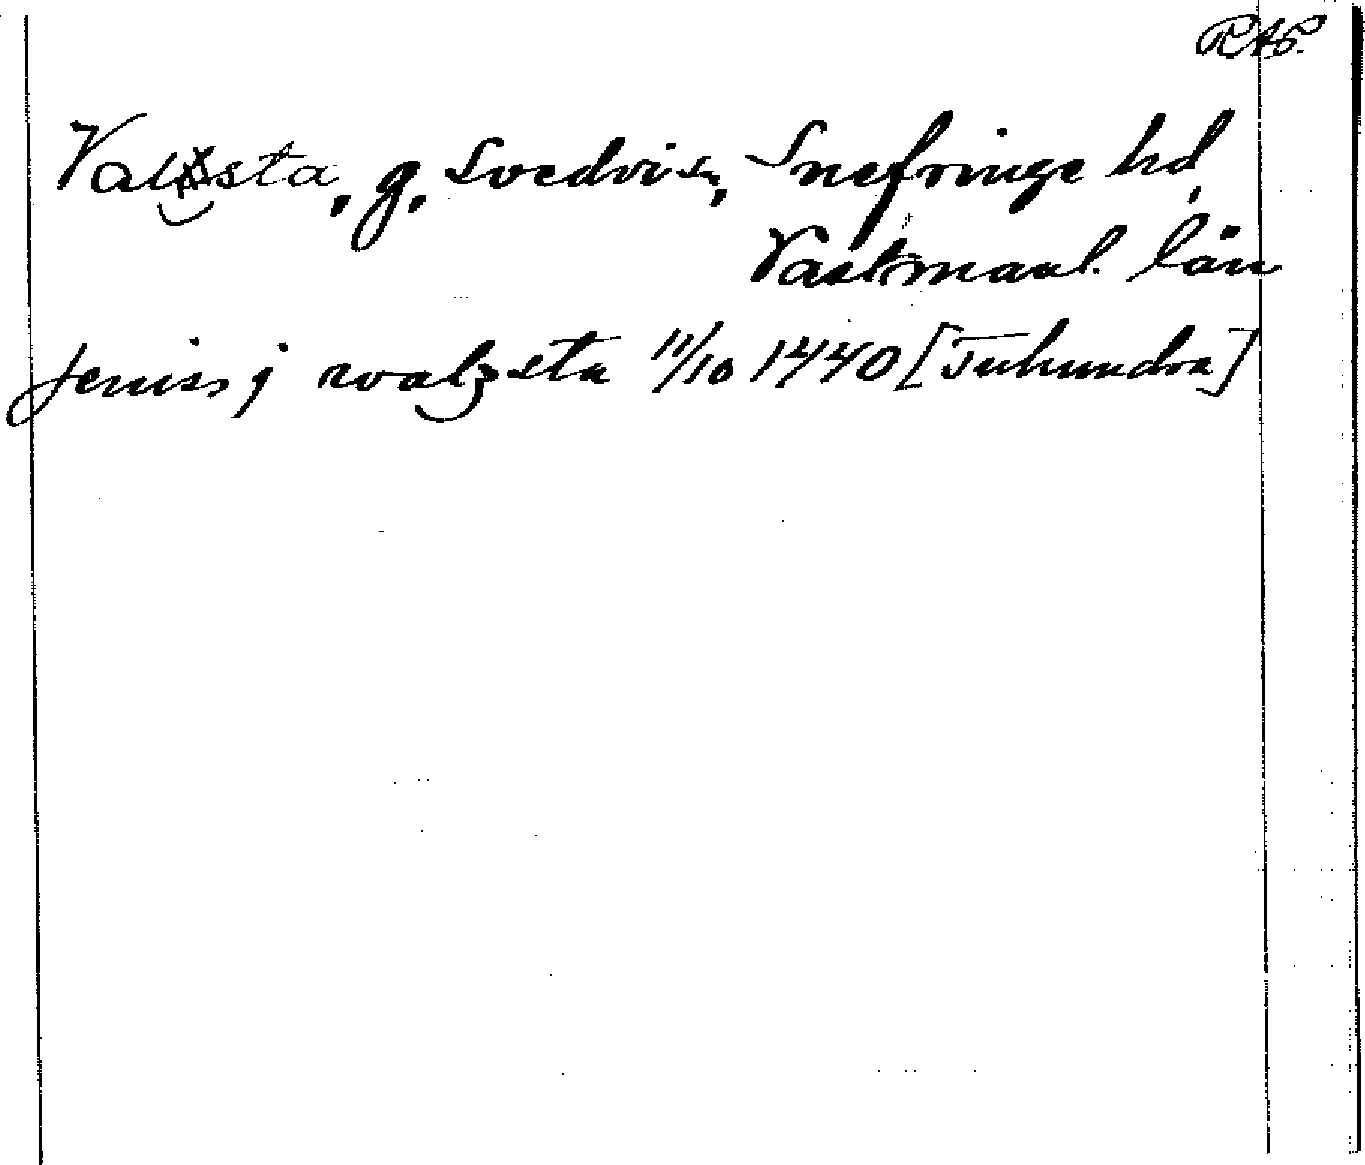 RAP.
Valsta, g, Svedvi sn, Snefringe hd,
Västmanl. län
Jeniss j walzsta 11/10 1440 [Tuhundra]